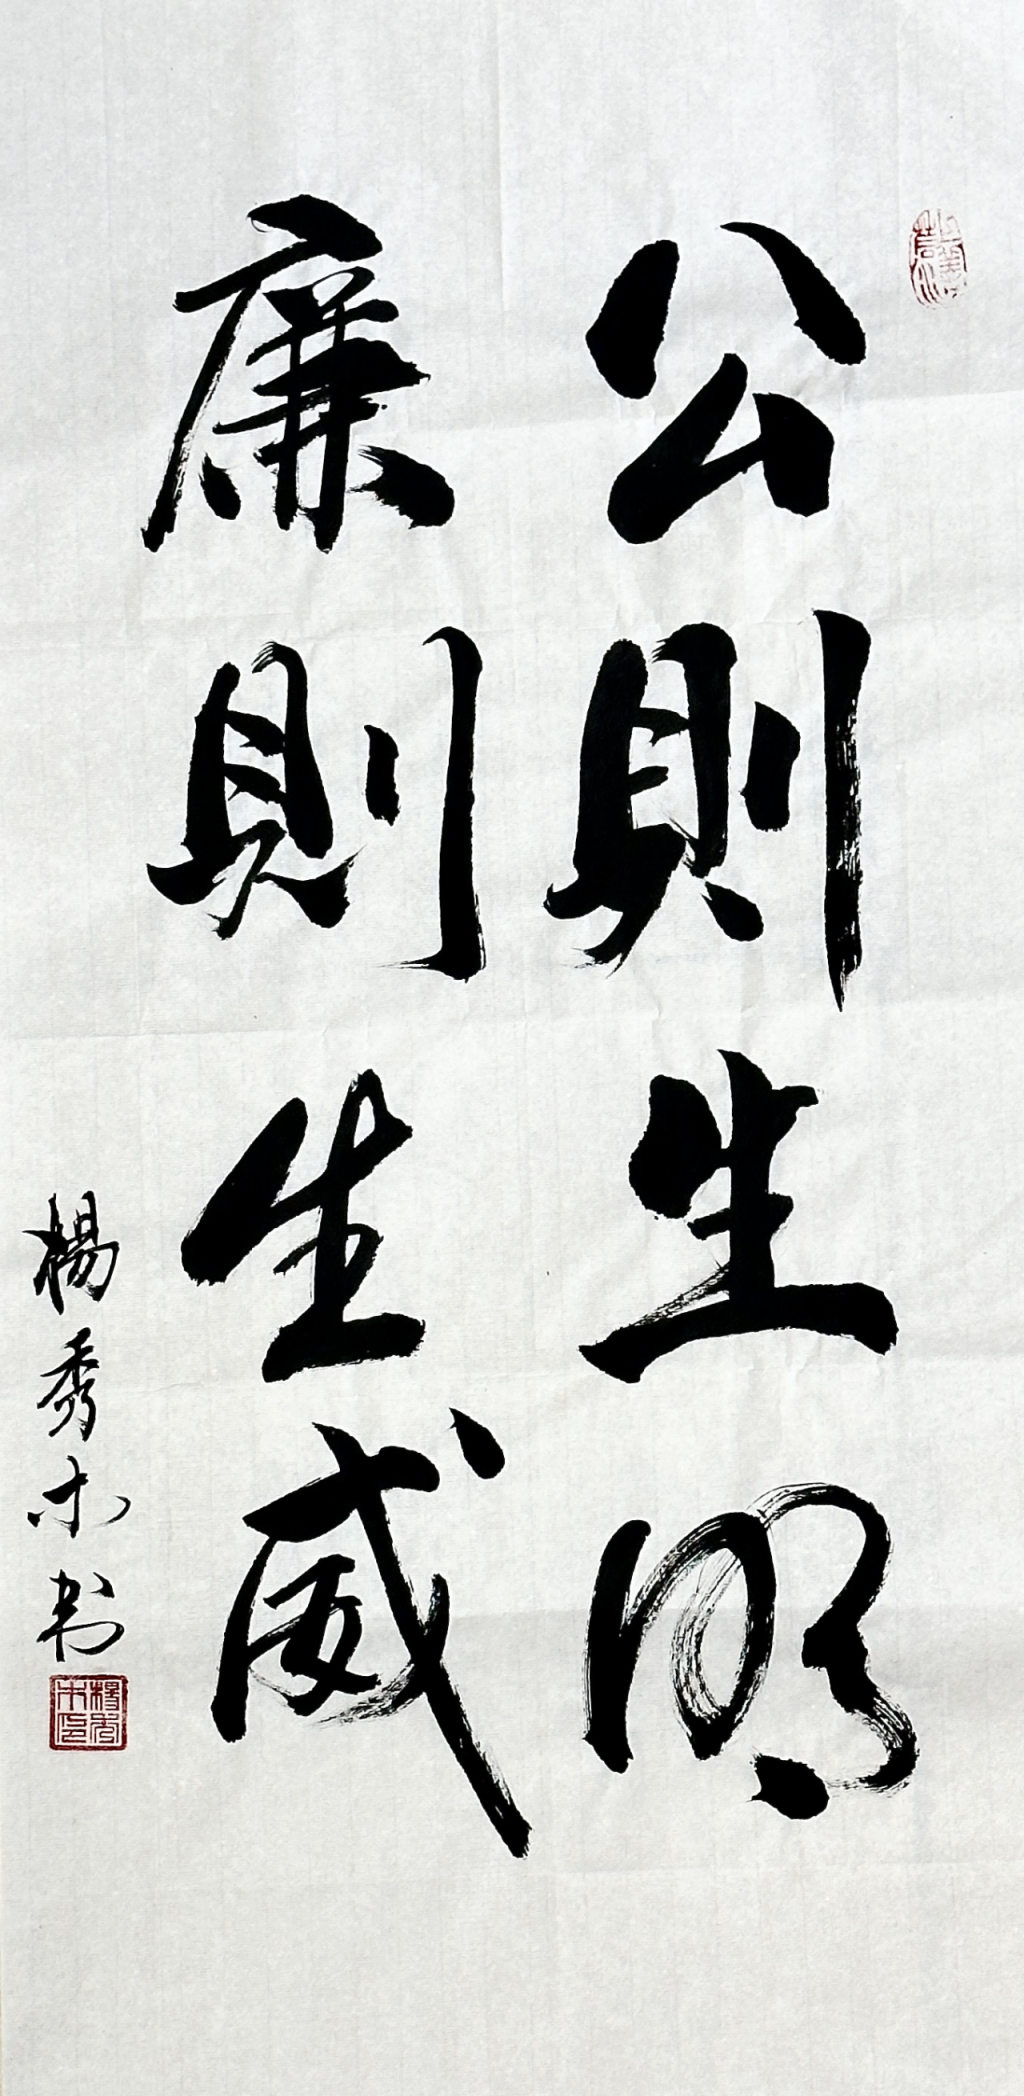 公則生明
廉則生威
楊秀木书